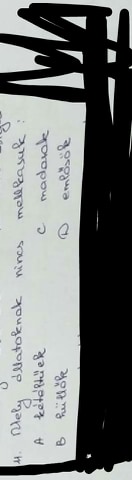 4. Mely állatoknak nincs mellkasuk:
A kétéltűek C madarak
B hüllők D emlősök